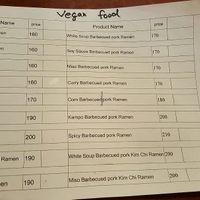 Vegan food
Name price Product Name price
160 White Soup Barbecued pork Ramen 170
160 Soy Sauce Barbecued pork Ramen 170
160 Miso Barbecued pork Ramen 170
160 Curry Barbecued pork Ramen 170
170 Corn Barbecued pork Ramen 180
190 Kampo Barbecued pork Ramen 200
200 Spicy Barbecued pork Ramen 210
Ramen 190 White Soup Barbecued pork Kim Chi Ramen 200
men 190 Miso Barbecued pork Kim Chi Ramen 200